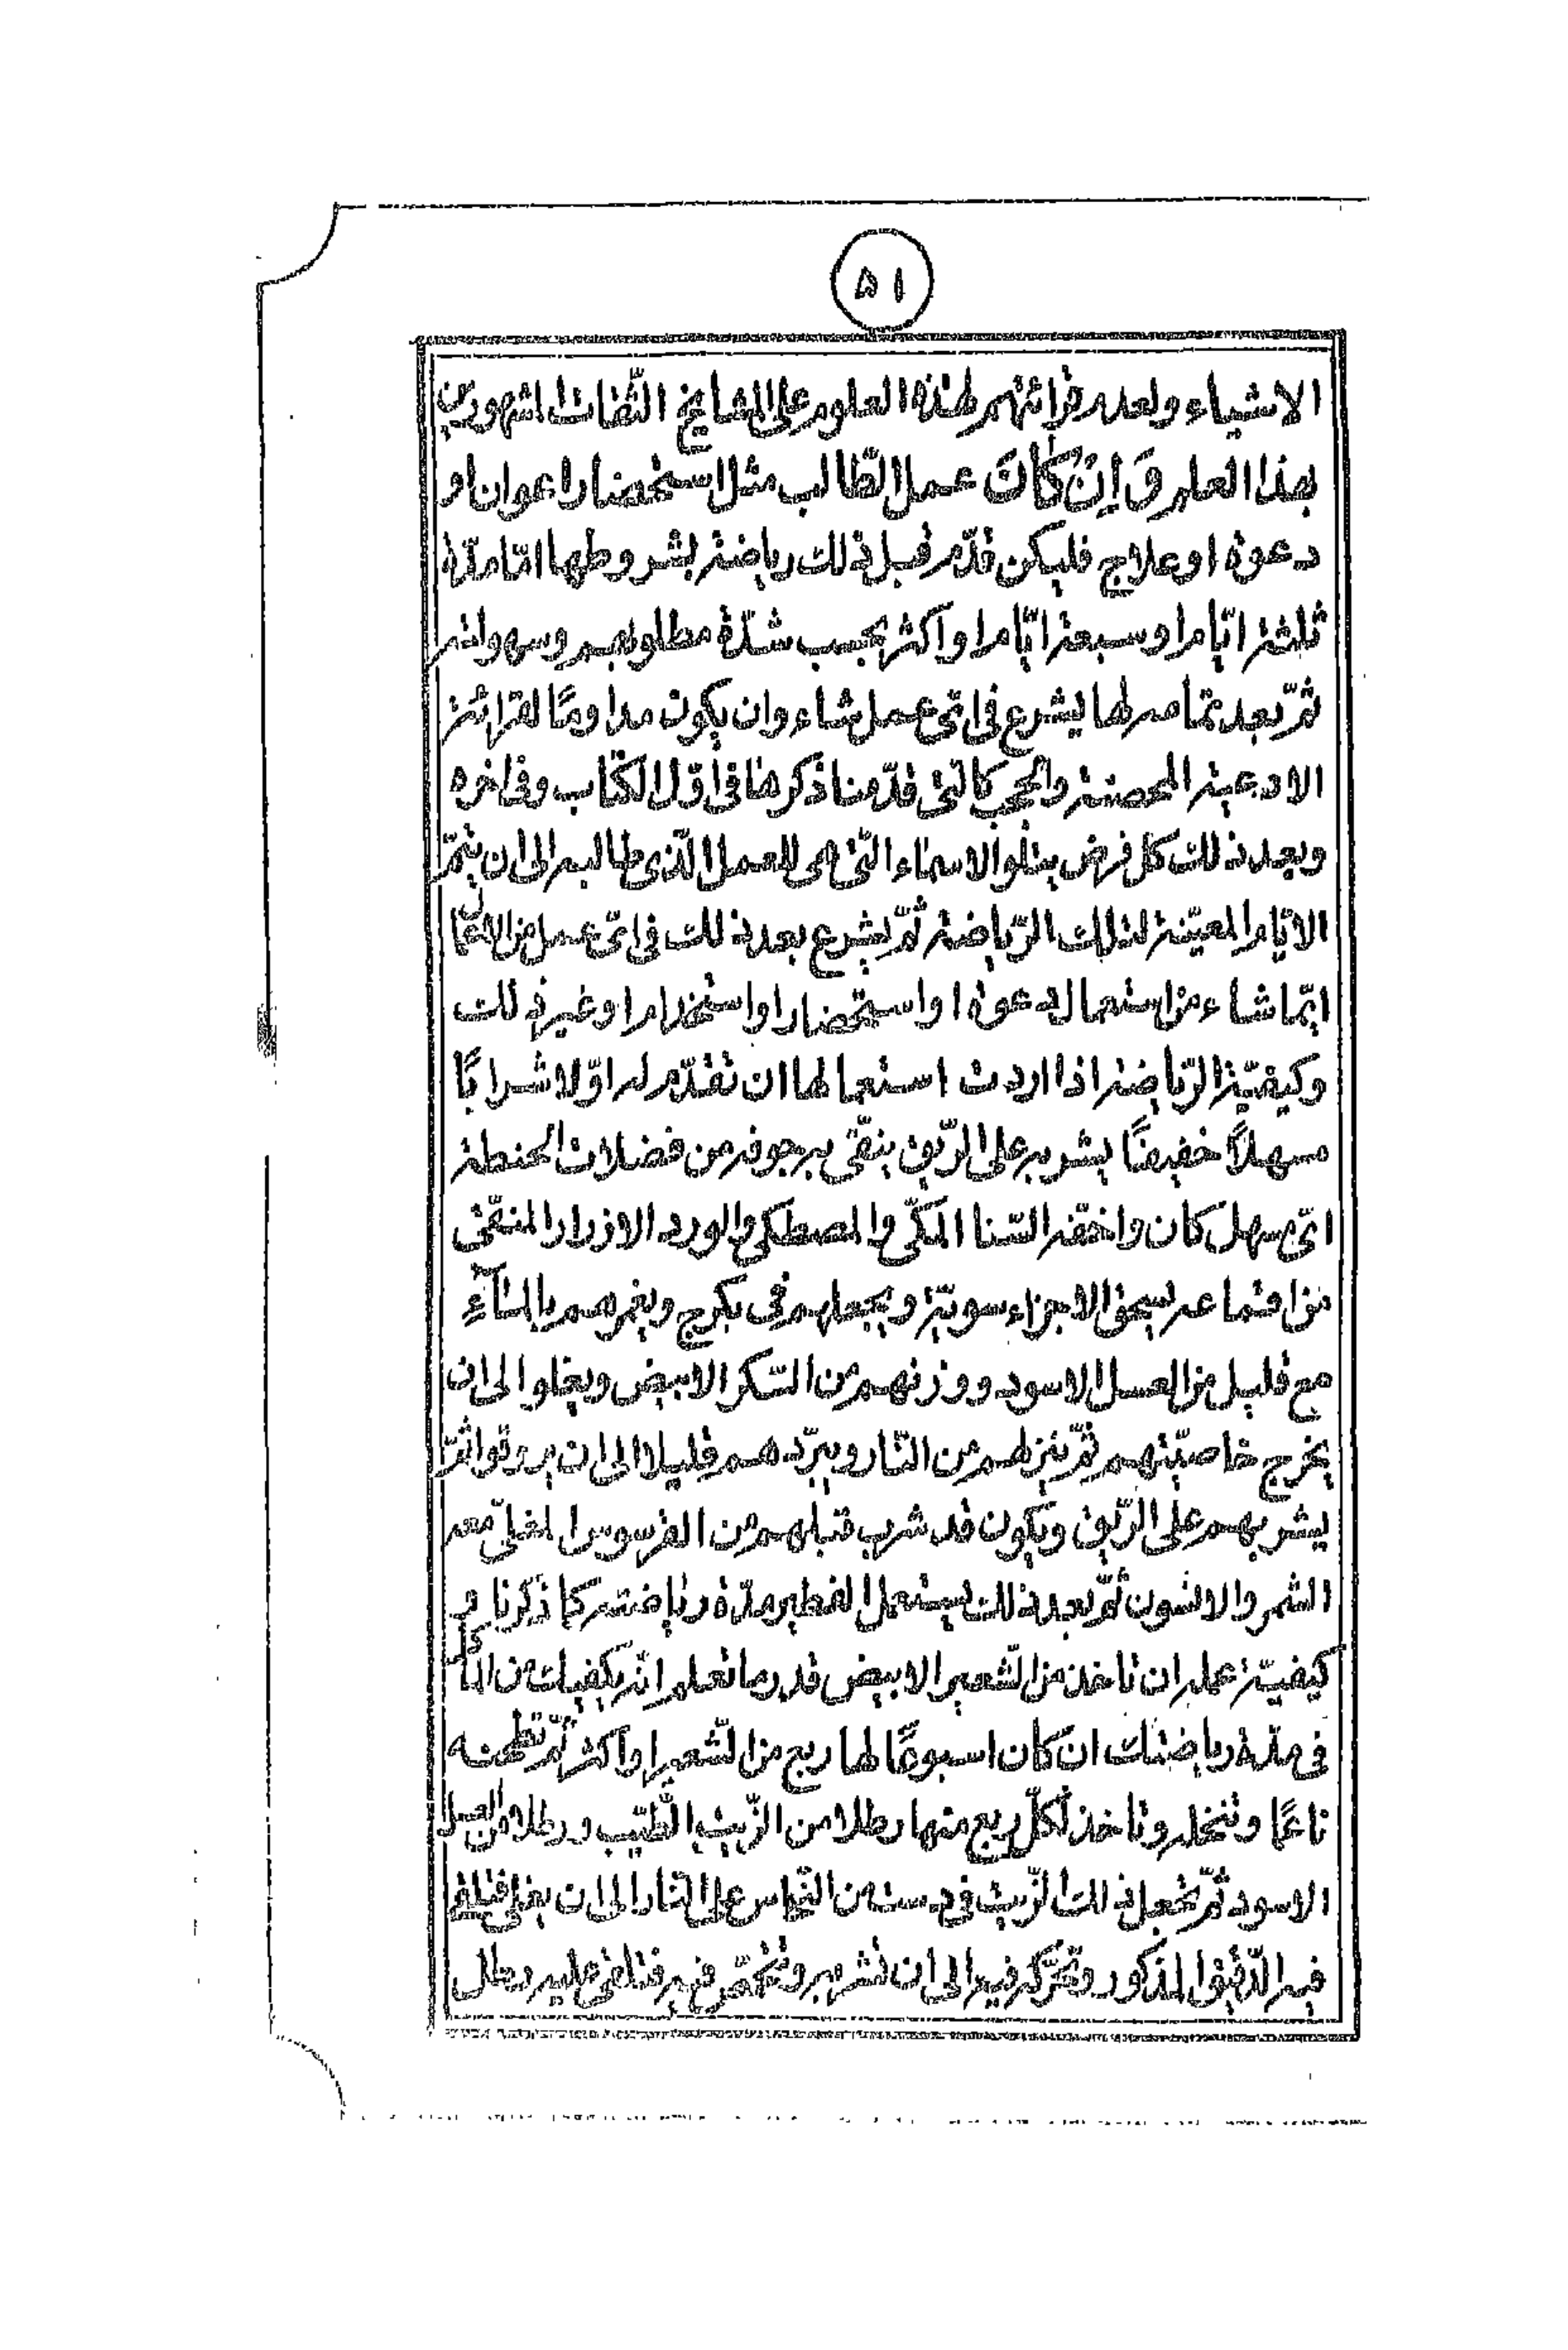 ٥١
الاشياء ولعدم قرائتهم لهذه العلوم على المشايخ الثقات المشهورين
بهذا العلم وَ اِنْ كَانَ عمل الطّالب مثل استحضار اعوان او
دعوة او علاج فليكن قدّم قبل ذلك رياضة بشروطها امّا مدّة
ثلثة ايّام او سبعة ايّام او اكثر بحسب شدّة مطلوبهم وسهولته
ثمّ بعد تمامه لها يشرع فى اىّ عمل شاء وان يكون مداومًا لقرائة
الادعية المحصنة والحجب كالتى قدّمنا ذكرها فى اوّل الكتاب وفى اخره
وبعد ذلك كل فرض يتلو الاسماء التى هى للعمل الذى طالبه الى ان يتمّ
الايّام المعيّنة لتلك الرّياضة ثمّ يشرع بعد ذلك فى اىّ عمل من الاعمال
ايّما شاء من استعمال دعوة او استحضار او استخدام او غير ذلك
وكيفيّة الرّياضة اذا اردت استعمالها ان تقدّم له اوّلا شرابًا
مسهلاً خفيفًا يشربه على الرّيق ينقّى به جوفه من فضلات الحنطة
اىّ مسهل كان واخفّه السّنا المكّى والمصطكى والورد الازرار المنقّى
من اقماعه يسحق الاجزاء سويّة ويجعلهم فى بكرج ويغمرهم بالمآء
مع قليل من العسل الاسود ووزنهم من السّكر الابيض ويغلوا الى ان
يخرج خاصيّتهم ثمّ ينزلهم من النّار ويبرّدهم قليلا الى ان يروقوا ثمّ
يشربهم على الرّيق ويكون قد شرب قبلهم من العرسوس المغلىّ معه
الشمر والانسون ثمّ بعد ذلك يستعمل الفطير مدّة رياضته كما ذكرنا و
كيفيّة عمله ان تاخذ من الشّعير الابيض قدر ما تعلم انّه يكفيك من الاكل
فى مدّة رياضتك ان كان اسبوعًا لها ربع من الشّعير او اكثر ثمّ تطحنه
ناعمًا وتنخله وتاخذ لكلّ ربع منها رطلا من الزّيت الطّيّب ورطلا من العسل
الاسود ثمّ تجعل ذلك الزّيت فى دست من النّحاس على النّار الى ان يغلى فتلقى
فيه الدّقيق المذكور وتحرّكه فيه الى ان تشربه وتتحمّر فيه فتلقى عليه رطل